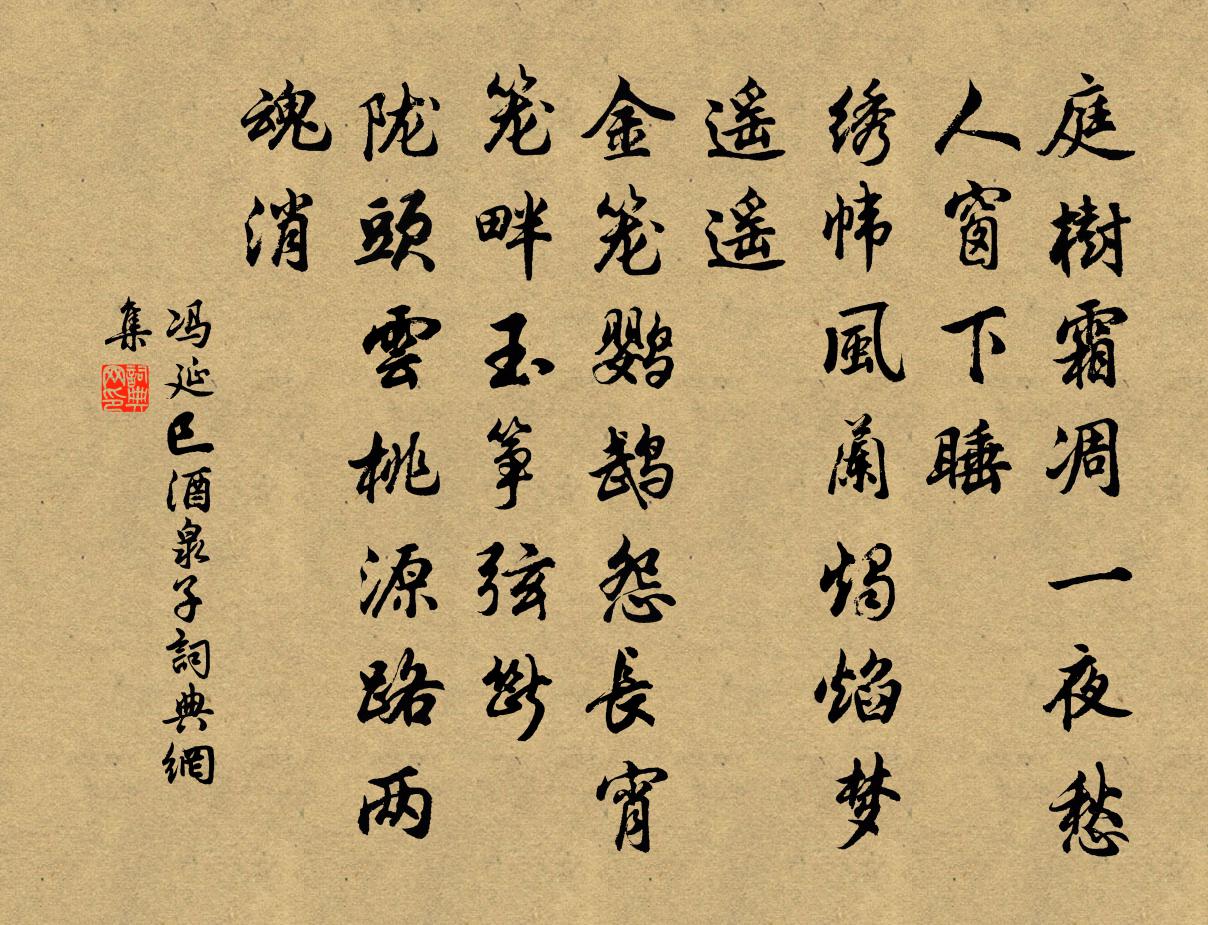 庭樹霜凋一夜愁
人窗下睡
绣帏風蘭燭焰梦
遥遥
金笼鹦鹉怨長宵
笼畔玉筝弦斷
陇頭雲桃源路两
魂消
冯延巳酒泉子詞典網
集
詞典网印